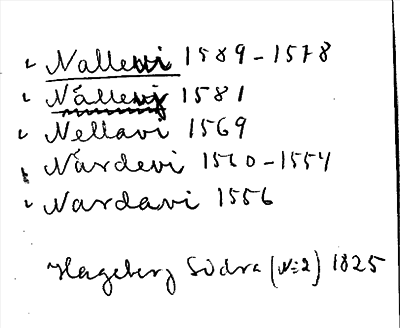 Nallevi 1589-1578
Nållevij 1581
Nellavi 1569
Nårdevi 1560-1554
Nardavi 1556
Hageberg Södra (N:2) 1825